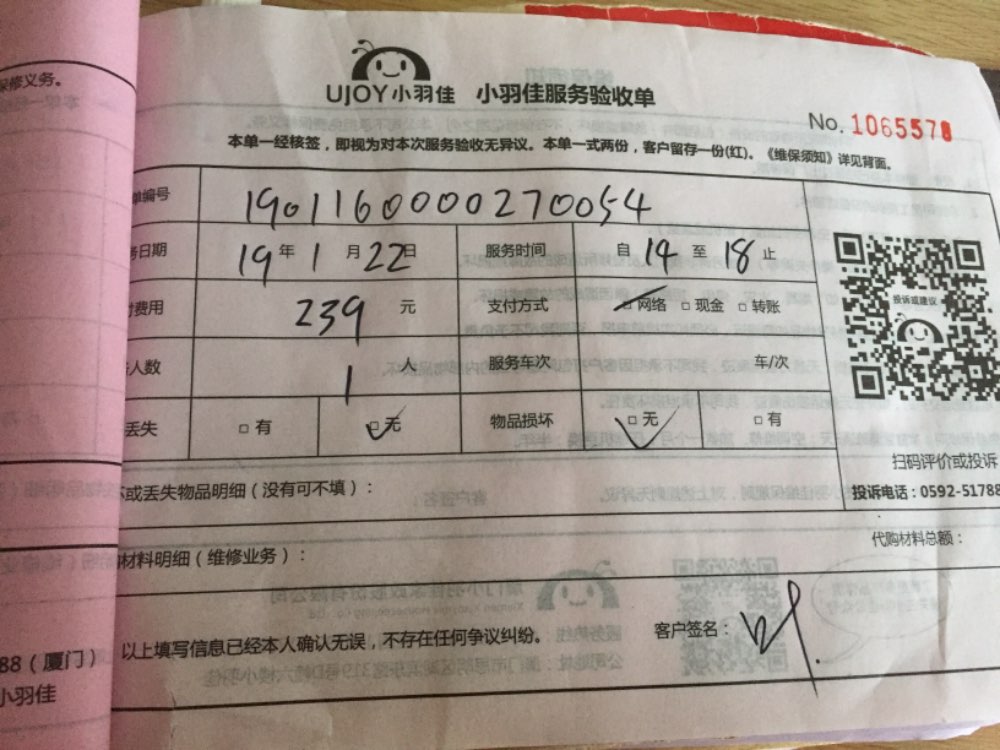 保修义务。
UJOY小羽佳 小羽佳服务验收单
No. 1065578
本单一经核签，即视为对本次服务验收无异议。本单一式两份，客户留存一份(红)。《维保须知》详见背面。
单编号 1901160000270054
务日期 19年1月22日 服务时间 自14至18止
付费用 239元 支付方式 网络 现金 转账
人数 1人 服务车次 车/次
丢失 有 无 物品损坏 无 有
投诉或建议
扫码评价或投诉
投诉电话：0592-51788
坏或丢失物品明细（没有可不填）：
材料明细（维修业务）： 代购材料总额：
以上填写信息已经本人确认无误，不存在任何争议纠纷。 客户签名：
88（厦门）
小羽佳